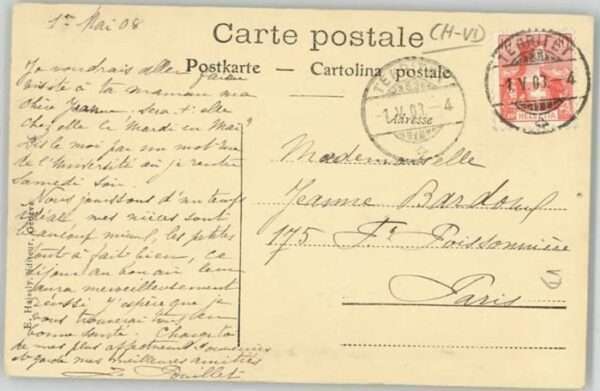 1er Mai 08
(H-VI)
Carte postale
Postkarte — Cartolina postale
Adresse
TERRITET
1.V.03.-4
TERRITET
1.V.03.-4
HELVETIA
Je voudrais aller faire
visite à ta maman ma
chère Jeanne. Sera-t-elle
chez elle le Mardi en Mai?
Dis le moi par un mot rue
de l'Université où je rentre
Samedi soir.
Nous jouissons d'un temps
idéal mes nièces sont
beaucoup mieux, les petites
tout à fait bien, ce
séjour au bon air leur
aura merveilleusement
réussi. J'espère que je
vous trouverai tous en
bonne santé. Charge-toi
de mes plus affectueux souvenirs
et garde mes meilleures amitiés
Pouillet
Mademoiselle
Jeanne Bardoux
175 Fg Poissonnière
Paris